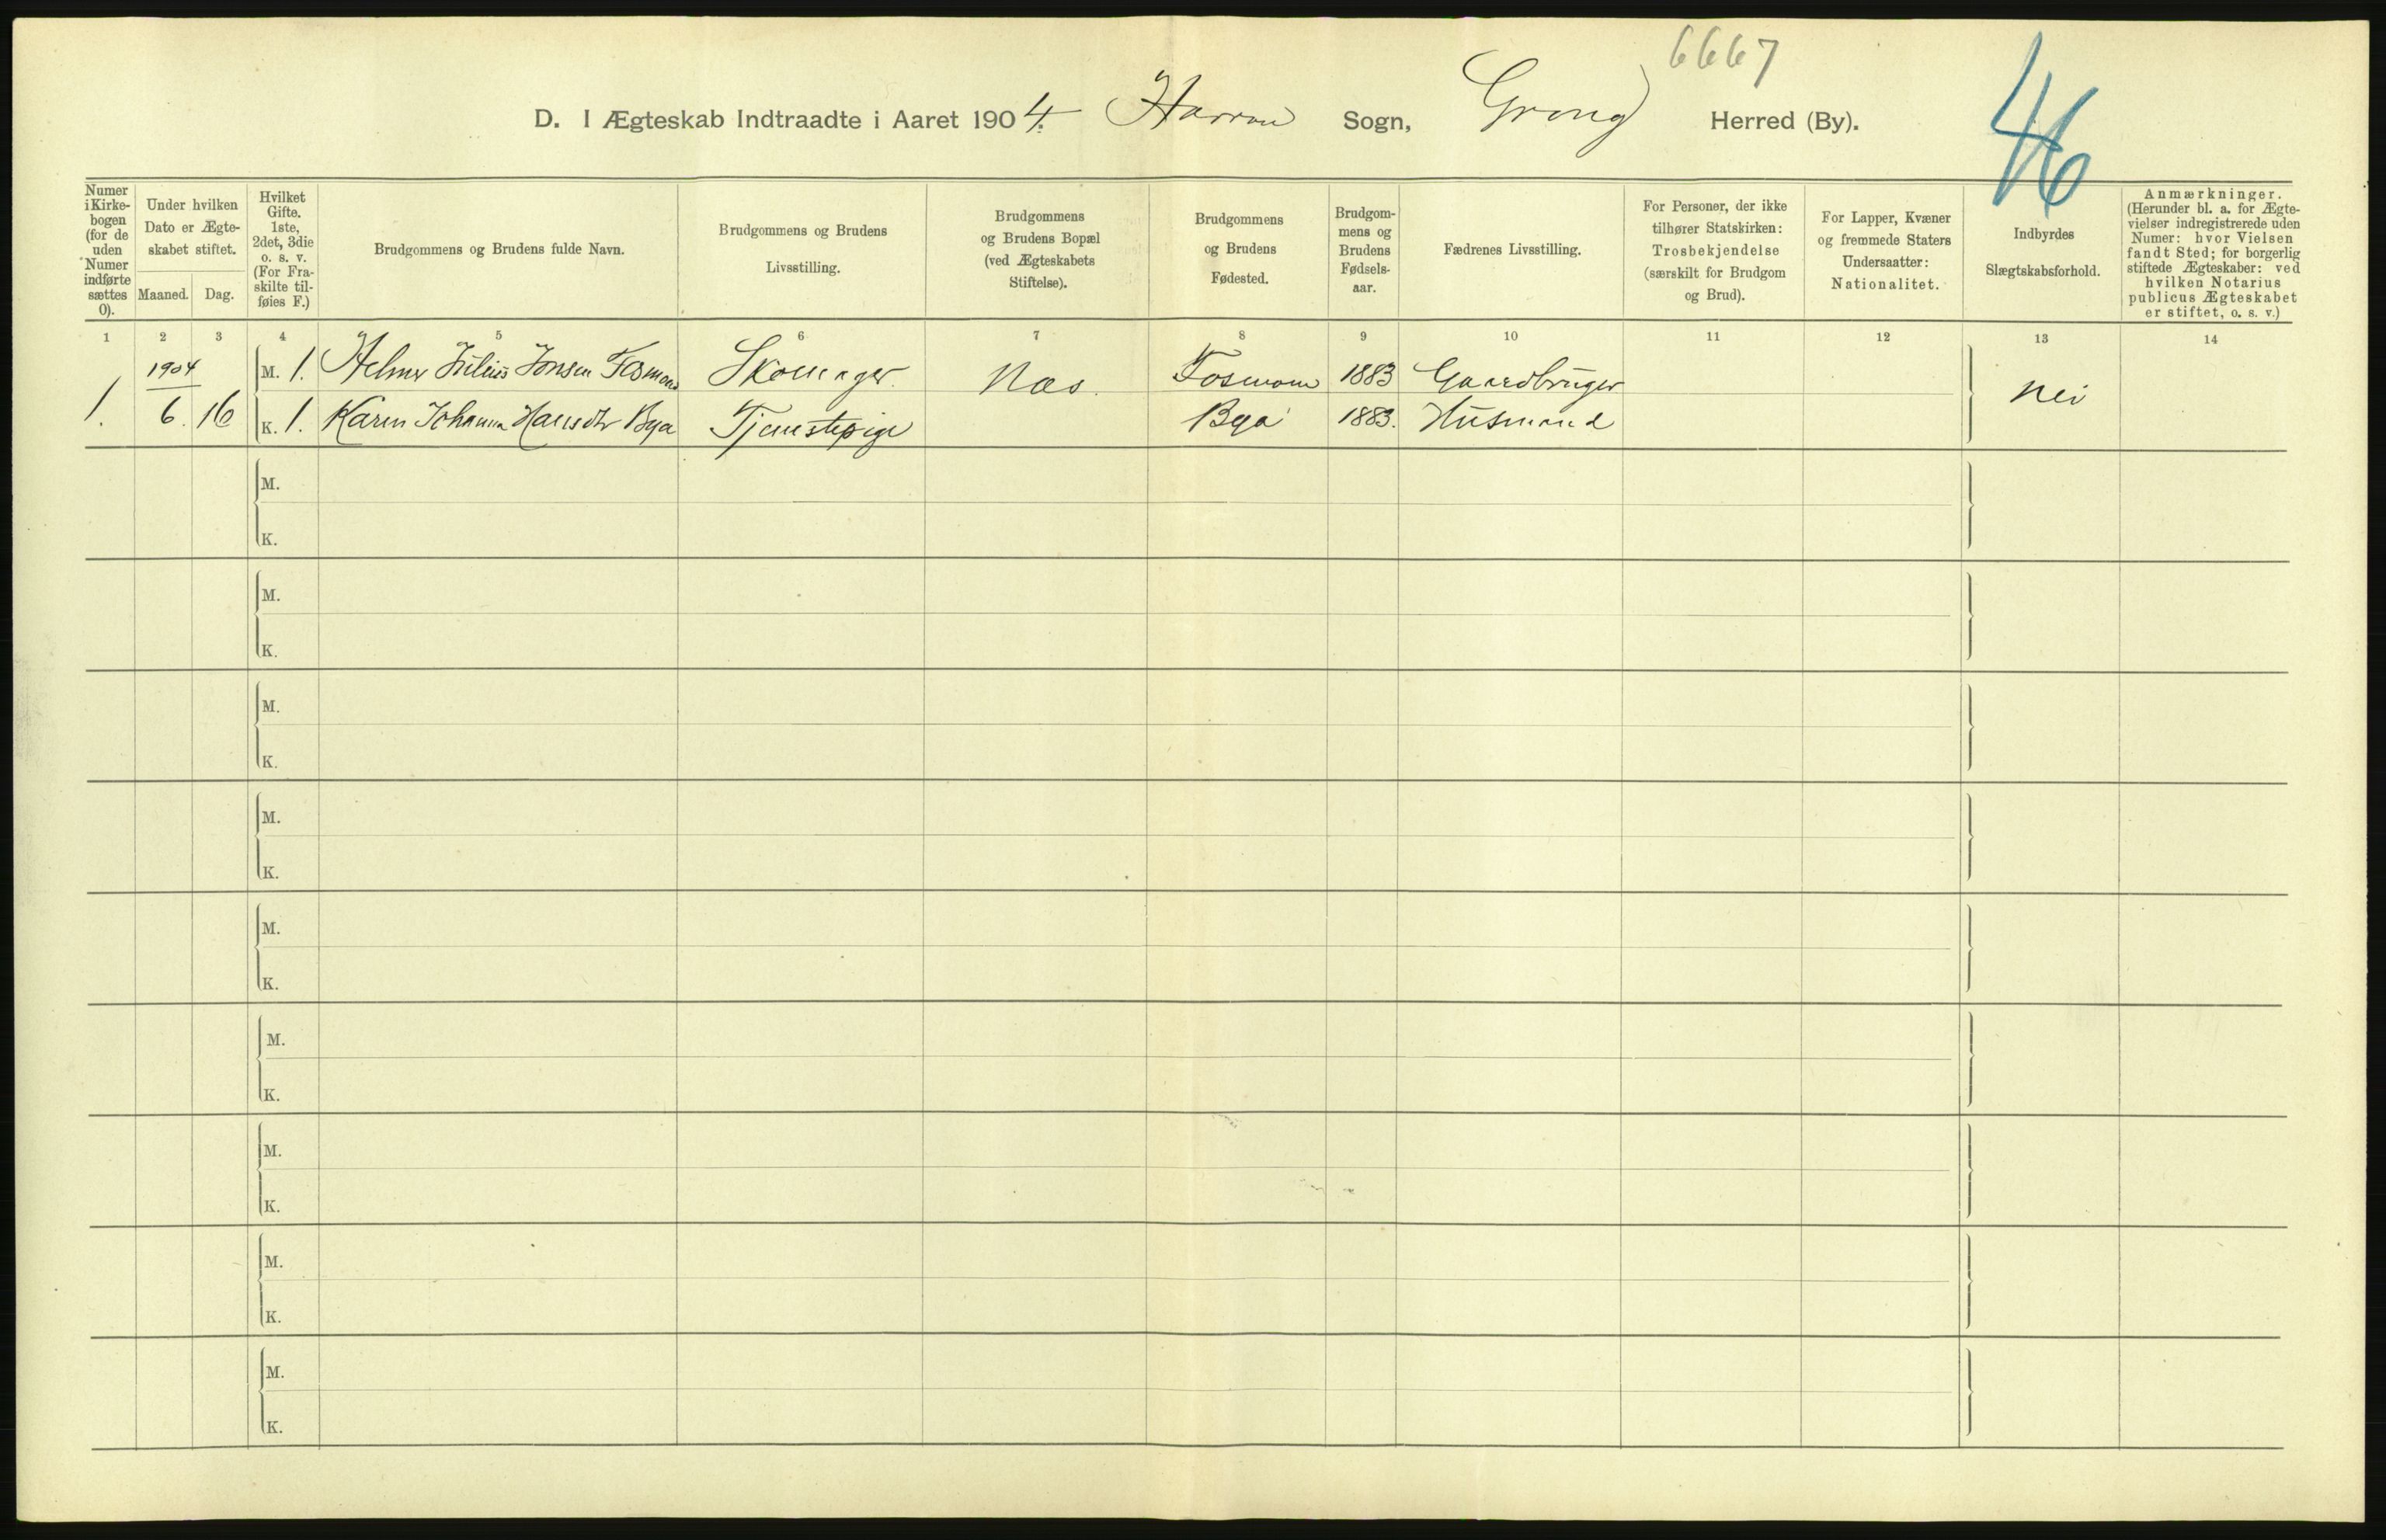 6667
46
D. I Ægteskab Indtraadte i Aaret 1904. Harran Sogn, Grong Herred (By).
Numer i Kirkebogen (for de uden Numer indførte sættes 0).
Under hvilken Dato er Ægteskabet stiftet.
Maaned. Dag.
Hvilket Gifte. 1ste, 2det, 3die o. s. v. (For Fraskilte tilføies F.)
Brudgommens og Brudens fulde Navn.
Brudgommens og Brudens Livsstilling.
Brudgommens og Brudens Bopæl (ved Ægteskabets Stiftelse).
Brudgommens og Brudens Fødested.
Brudgommens og Brudens Fødselsaar.
Fædrenes Livsstilling.
For Personer, der ikke tilhører Statskirken: Trosbekjendelse (særskilt for Brudgom og Brud).
For Lapper, Kvæner og fremmede Staters Undersaatter: Nationalitet.
Indbyrdes Slægtskabsforhold.
Anmærkninger. (Herunder bl. a. for Ægtevielser indregistrerede uden Numer: hvor Vielsen fandt Sted; for borgerlig stiftede Ægteskaber: ved hvilken Notarius publicus Ægteskabet er stiftet, o. s. v.)
1 2 3 4 5 6 7 8 9 10 11 12 13 14
1904 M. 1. Helmer Julius Jonsen Fosmoen Skomager. Næs. Fosmoen 1883 Gaardbruger Nei
1. 6. 16 K. 1. Karen Johanna Hansdtr Bya Tjenestepige Bya 1883. Husmand
M.
K.
M.
K.
M.
K.
M.
K.
M.
K.
M.
K.
M.
K.
M.
K.
M.
K.